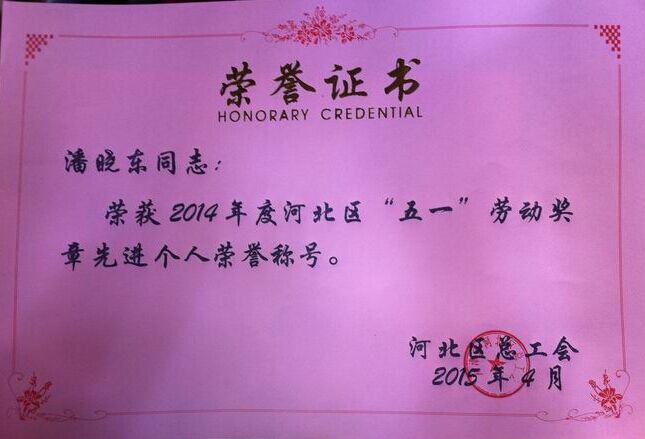 荣誉证书
HONORARY CREDENTIAL
潘晓东同志：
荣获2014年度河北区“五一”劳动奖
章先进个人荣誉称号。
河北区总工会
2015年4月